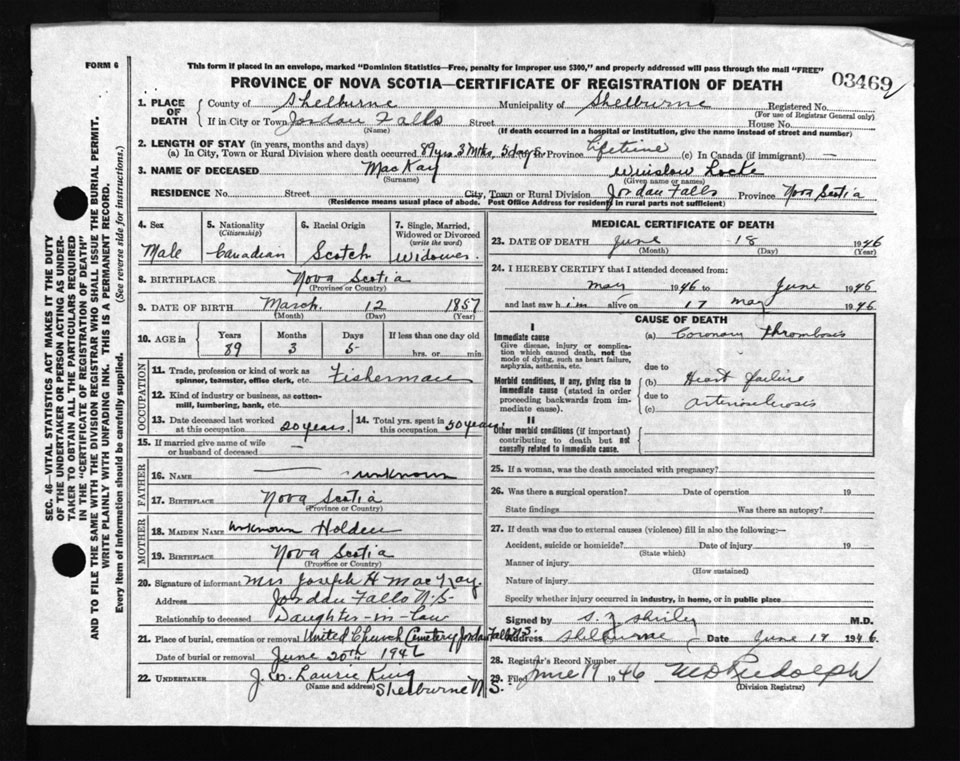 FORM 6
This form if placed in an envelope, marked "Dominion Statistics—Free, penalty for improper use $300," and properly addressed will pass through the mail "FREE"
PROVINCE OF NOVA SCOTIA—CERTIFICATE OF REGISTRATION OF DEATH
03469
1. PLACE OF DEATH County of Shelburne Municipality of Shelburne Registered No.
(For use of Registrar General only)
If in City or Town Jordan Falls Street House No.
(Name) (If death occurred in a hospital or institution, give the name instead of street and number)
2. LENGTH OF STAY (in years, months and days)
(a) In City, Town or Rural Division where death occurred 89 yrs 3 Mths, 5 days in Province Lifetime (c) In Canada (if immigrant) —
3. NAME OF DECEASED MacKay Winslow Locke
(Surname) (Given name or names)
RESIDENCE No. Street City, Town or Rural Division Jordan Falls Province Nova Scotia
(Residence means usual place of abode. Post Office Address for residents in rural parts not sufficient)
4. Sex Male
5. Nationality (Citizenship) Canadian
6. Racial Origin Scotch
7. Single, Married, Widowed or Divorced (write the word) Widower.
8. BIRTHPLACE Nova Scotia
(Province or Country)
9. DATE OF BIRTH March 12 1857
(Month) (Day) (Year)
10. AGE in Years Months Days If less than one day old
89 3 5 hrs. or min.
OCCUPATION
11. Trade, profession or kind of work as spinner, teamster, office clerk, etc. Fisherman
12. Kind of industry or business, as cotton-mill, lumbering, bank, etc.
13. Date deceased last worked at this occupation 20 years.
14. Total yrs. spent in this occupation 50 years
15. If married give name of wife or husband of deceased —
FATHER
16. NAME unknown
17. BIRTHPLACE Nova Scotia
(Province or Country)
MOTHER
18. MAIDEN NAME unknown Holden
19. BIRTHPLACE Nova Scotia
(Province or Country)
20. Signature of informant Mrs Joseph H MacKay.
Address Jordan Falls N.S.
Relationship to deceased Daughter-in-law
21. Place of burial, cremation or removal United Church Cemetery Jordan Falls N.S.
Date of burial or removal June 20th 1946
22. UNDERTAKER J. W. Laurie King
(Name and address) Shelburne N.S.
MEDICAL CERTIFICATE OF DEATH
23. DATE OF DEATH June 18 1946
(Month) (Day) (Year)
24. I HEREBY CERTIFY that I attended deceased from:
May 1946 to June 1946
and last saw him alive on 17 May 1946
CAUSE OF DEATH
I
Immediate cause
Give disease, injury or complication which caused death, not the mode of dying, such as heart failure, asphyxia, asthenia, etc.
(a) Coronary Thrombosis
due to
Morbid conditions, if any, giving rise to immediate cause (stated in order proceeding backwards from immediate cause).
(b) Heart failure
due to
(c) arteriosclerosis
II
Other morbid conditions (if important) contributing to death but not causally related to immediate cause.
25. If a woman, was the death associated with pregnancy?
26. Was there a surgical operation? Date of operation 19
State findings Was there an autopsy?
27. If death was due to external causes (violence) fill in also the following:—
Accident, suicide or homicide? Date of injury 19
(State which)
Manner of injury
(How sustained)
Nature of injury
Specify whether injury occurred in industry, in home, or in public place
Signed by S. Z Shirley M.D.
Address Shelburne Date June 18 1946.
28. Registrar's Record Number
29. Filed June 19 1946 M D Rudolph
(Division Registrar)
SEC. 46—VITAL STATISTICS ACT MAKES IT THE DUTY
OF THE UNDERTAKER OR PERSON ACTING AS UNDER-
TAKER TO OBTAIN ALL THE PARTICULARS REQUIRED
IN THE "CERTIFICATE OF REGISTRATION OF DEATH"
AND TO FILE THE SAME WITH THE DIVISION REGISTRAR WHO SHALL ISSUE THE BURIAL PERMIT.
WRITE PLAINLY WITH UNFADING INK. THIS IS A PERMANENT RECORD.
Every item of information should be carefully supplied. (See reverse side for instructions.)